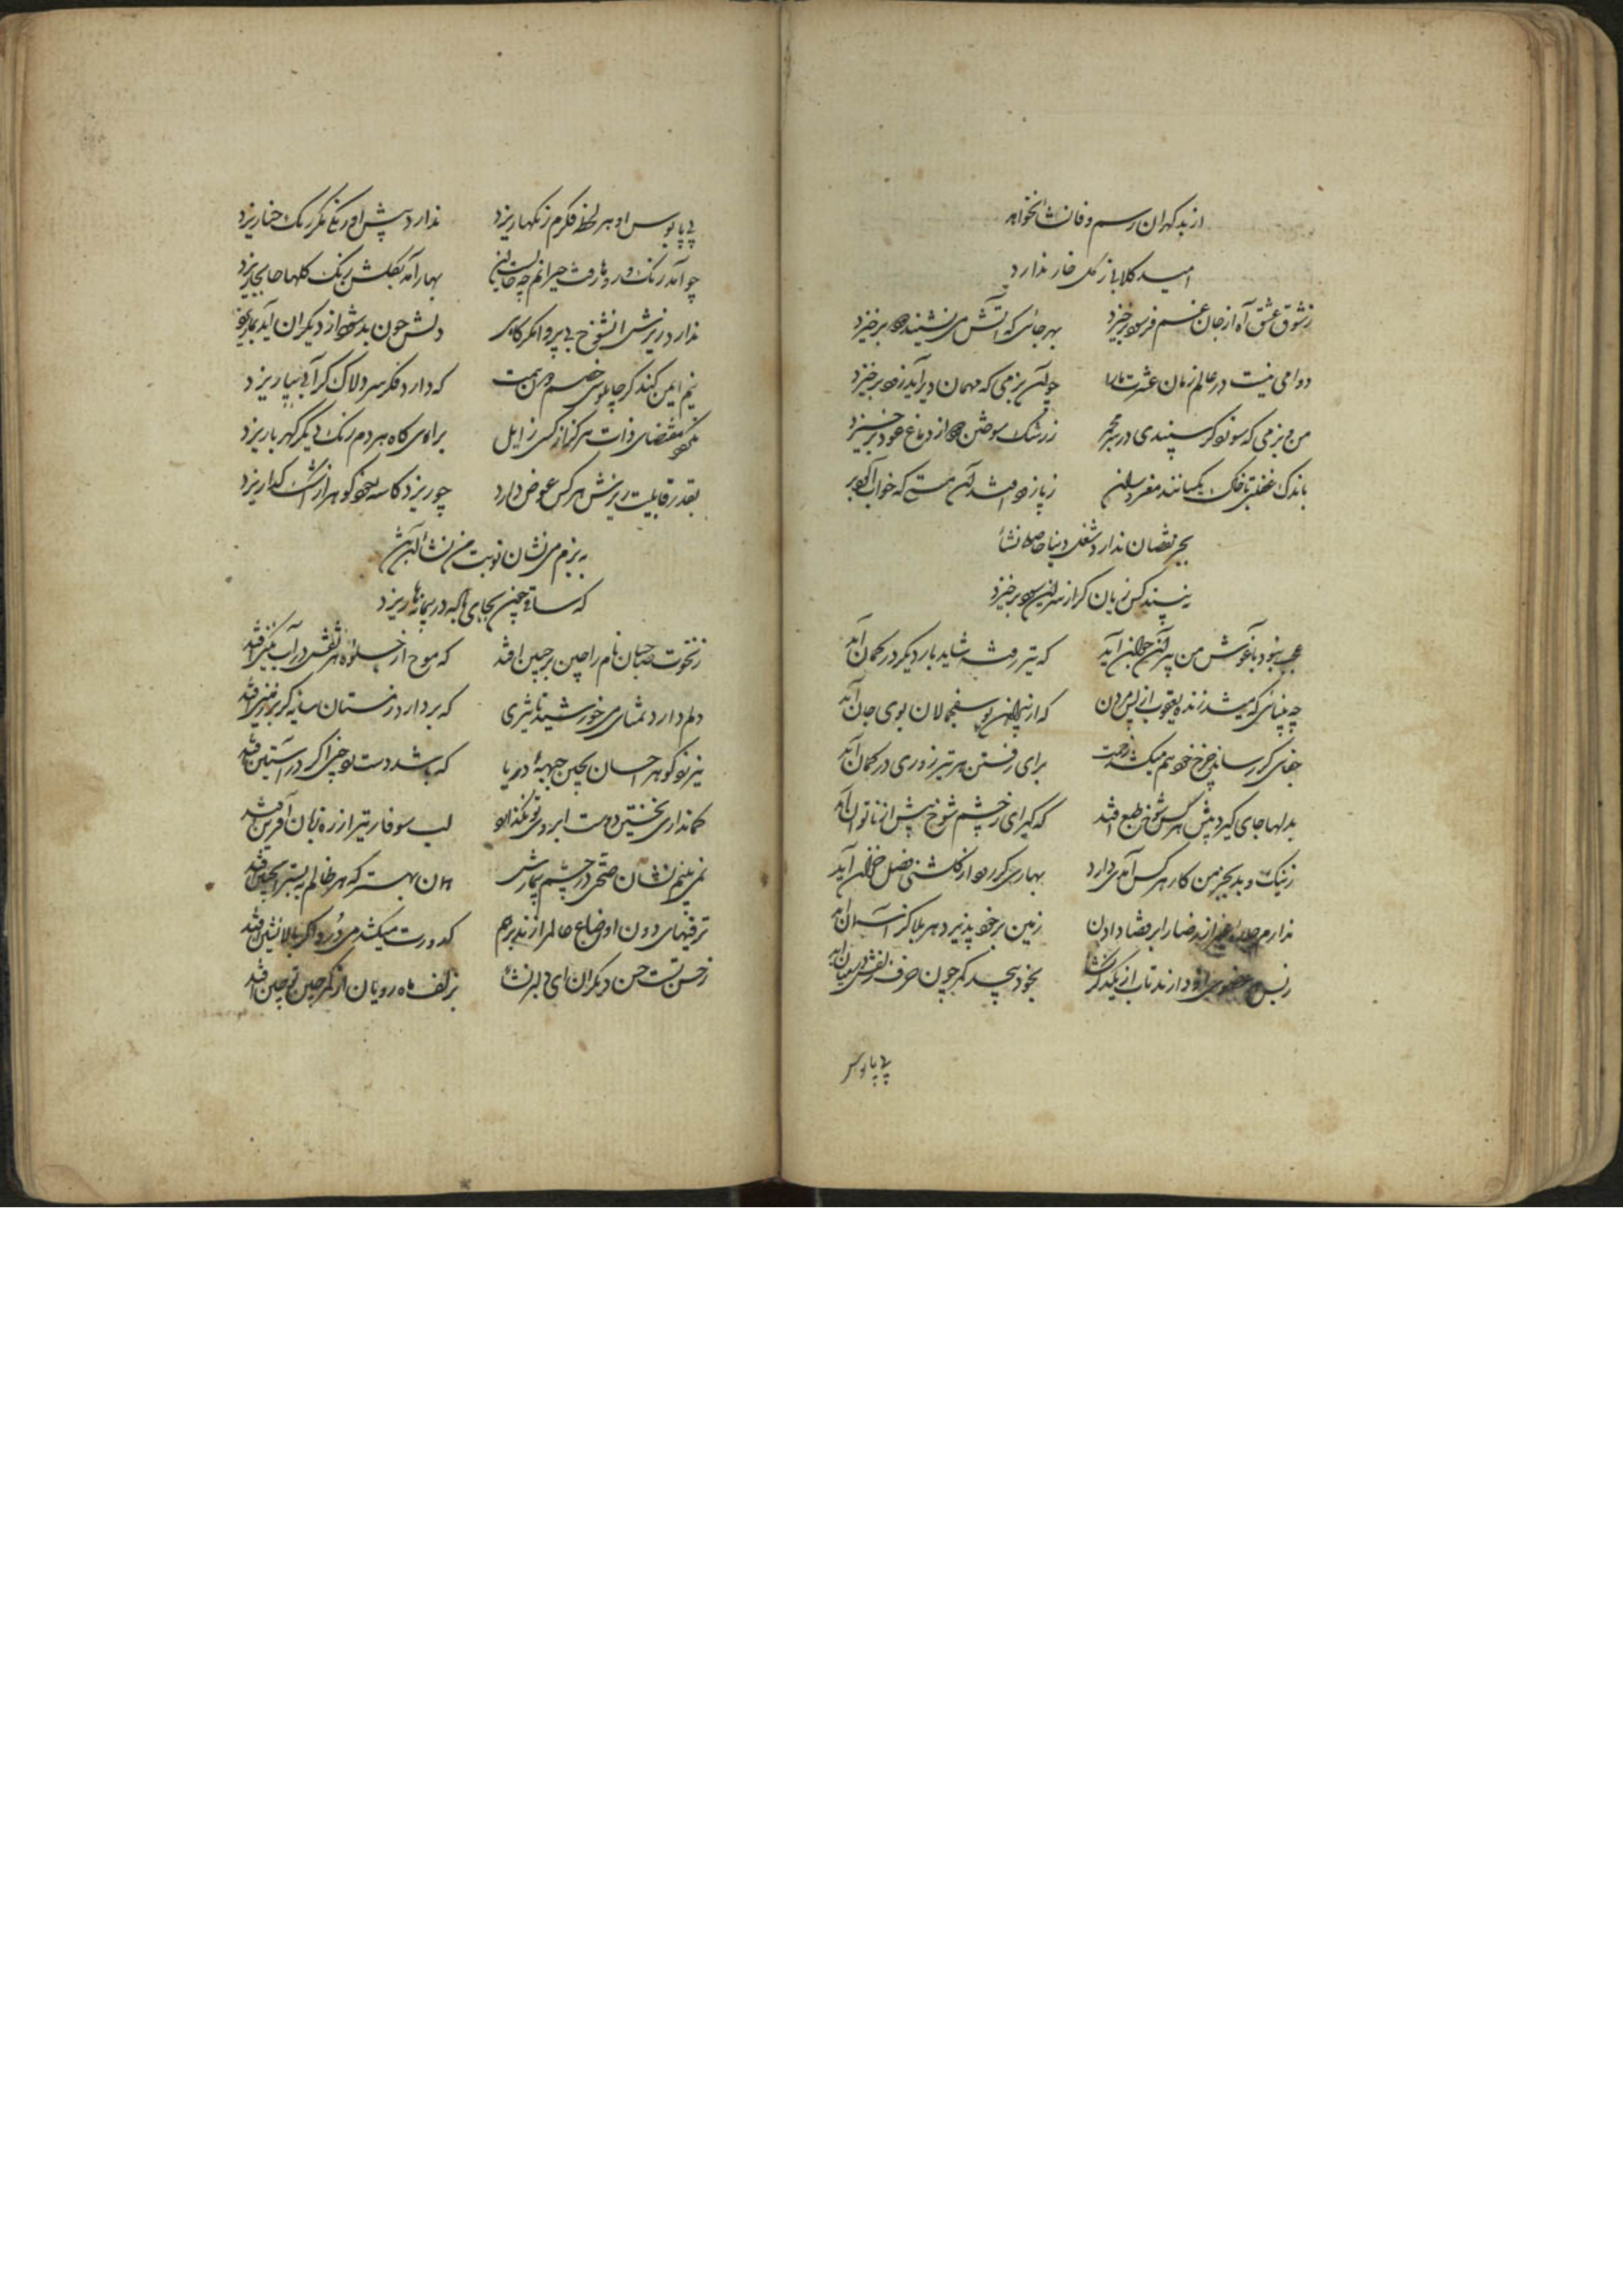 از بد گهران رسم وفا نشأ نخواهد
امید گلابی ز گل خار ندارد
ز شوق عشق آه از جان غم فرسود برخیزد
بهر جائی که آتش می نشیند دود برخیزد
دوامی نیست در عالم زمان عشرت ما را
چو آن بزمی که مهمان دیر آید زود برخیزد
من و بزمی که سوزد گر سپندی در سر مجمر
ز رشک سوختن دود از دماغ عود برخیزد
باندک غفلتی با خاک یکسانند مغروران
ز پا زود افتد آن مستی که خواب آلود برخیزد
بجز نقصان ندارد شغل دنیا حاصلی نشأ
نه بیند کس زیان گر از سر این سود برخیزد
عجب نبود بآغوش من پیر آن جوان آید
که تیر رفته شاید بار دیگر در کمان آید
که از پیراهن یوسف جمالان بوی جان آید
جفای گر رساند چرخ خود هم میکشد زحمت
برای رفتن هر تیر زوری در کمان آید
بدلها جای گیرد بیش هر کس شوخ طبع افتد
که گیرای ز چشم شوخ بیش از ناتوان آید
ز نیک و بد بجز من کار هر کس آمدی دارد
بهاری گر رود از گلشنی فصل خزان آید
زمین بر خود پذیرد هر بلا کز آسمان آید
بخود پیچد کمر چون حرف زلفش در میان آید
پی پابوس
پی پابوس او هر لحظه فکرم رنگها ریزد
ندارد پیش او رنگی مگر رنگ حنا ریزد
چو آمد رنگ در رو رفت حیرانم چه حالست این
بهار آمد بگلشن رنگ گلها جابجا ریزد
ندارد ریزشی آن شوخ بی پروا مگر گاهی
دلش چون پر شود از دیگران آید بما ریزد
نیم ایمن کند گر چاپلوسی خصم دون همت
که دارد فکر سر دلاک گر آبی بپا ریزد
نگردد مقتضای ذات هرگز از کسی زایل
برای کاه هر دم رنگ دیگر کهربا ریزد
بقدر قابلیت ریزش هر کس عوض دارد
چو ریزد کاسه خود گوهر از اشک گدا ریزد
به بزم می نشان نوبت من نشأ آن آتش
که ساقی چین بجای باده در پیمانه ها ریزد
ز نخوت صاحبان نام را چین بر جبین افتد
دلم دارد تمنای می خورشید تأثیری
که بردارد ز مستان سایه گر بر زمین افتد
نیرزد گوهر احسان بچین جبهه دریا
که باشد دست تو چینی اگر در آستین افتد
کمانداری نخستین دوست ابروی تو نگذارد
لب سوفار تیر از زه زبان آفرین افتد
نمی بینم نشان صحتی در چشم بیمارش
همان بهتر که هر ظالم به بستر اینچنین افتد
ترقیهای دون اوضاع عالم را زند بر هم
کدورت میکشد می دُرد اگر بالانشین افتد
ز حسن تست حسن دیگران ای دلبر نشأ
بزلف ماه رویان از کمر چین تو چین افتد